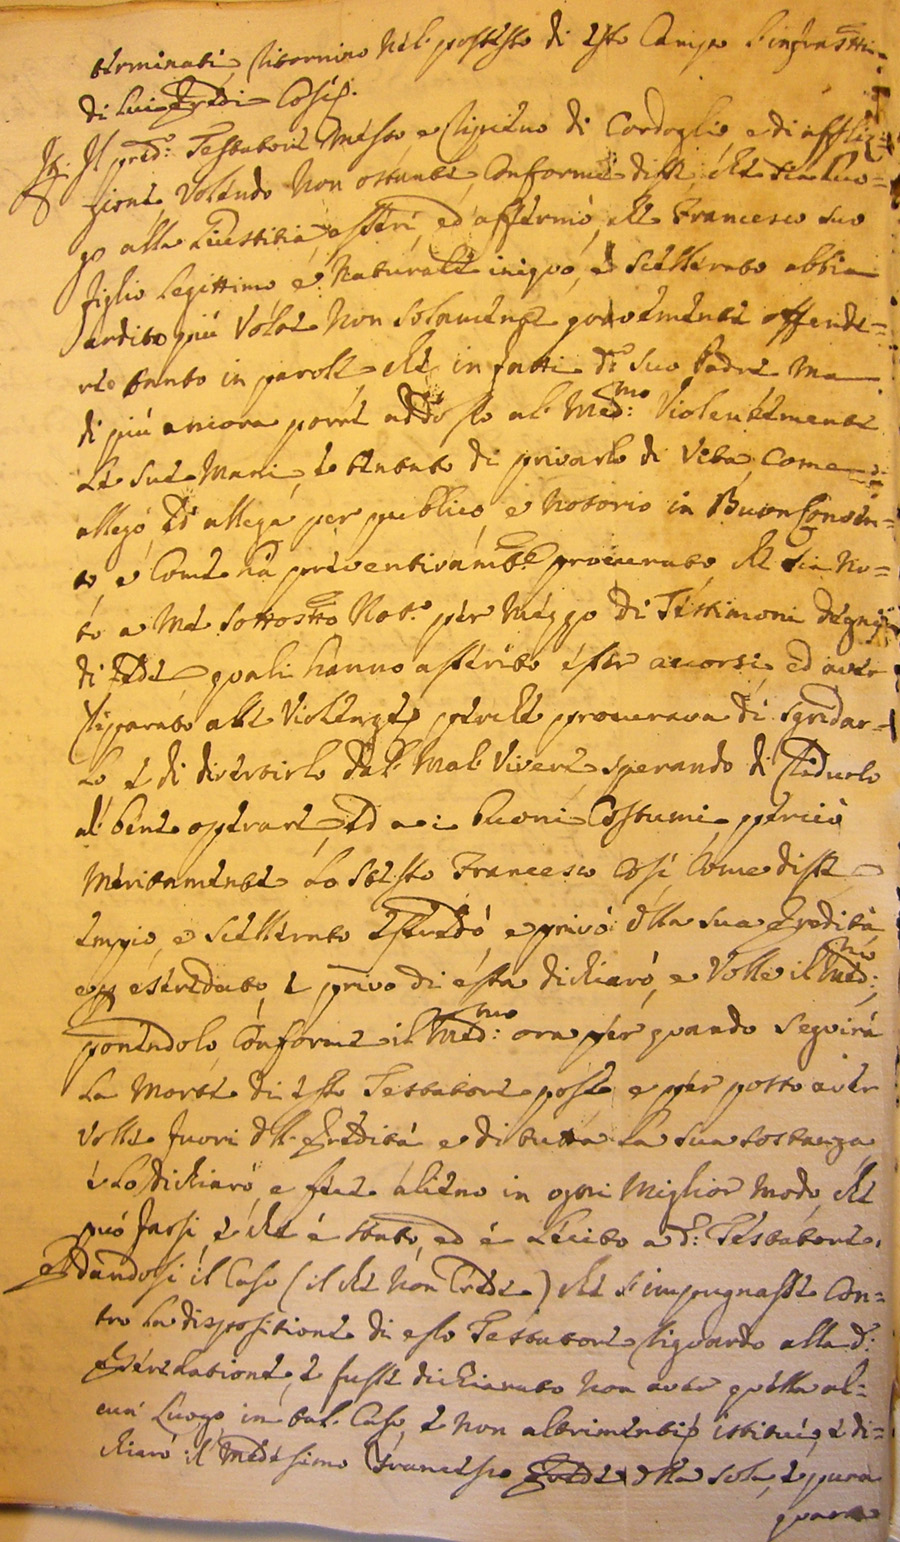 terminati, ritornino nel possesso di esto Campo l'infratti
di lui Eredi Cosi.
Il pred: Testatore Mesto, e ripieno di Cordoglio, e di affli=
zione Volendo non ostante, Conforme disse, che dia luo=
go alla Giustitia asserì, ed affermò, che Francesco suo
figlio legittimo e naturale iniquo, e scellerato abbia
ardito più Volte non solamente gravemente offende=
re tanto in parole che in fatti do suo Padre ma
di più ancora porre addosso al Med:mo Violentemente
le sue Mani, e tentato di privarlo di Vita, Come
allegò, ed allega per publico, e notorio in Buonconven=
to, e Come hà preventivamte procurato che sia No=
to a Me sottostto Noto per mezzo di Testimoni degni
di Fede quali hanno asserito esser accorsi, ed aver
riparato alle Violenze, perche procurava di sgridar=
lo, e di divertirlo dal Mal Vivere sperando di ridurlo
al bene operare, ed a i buoni Costumi, perciò
Meritamente lo stesso Francesco Così Come disse
empio, e scellerato eseredò, e privò della sua Eredità
e p eseredato, e privo di essa dichiarò, e Volle il Med:mo,
ponendolo, Conforme il Med:mo ora per quando seguirà
la Morte di esso Testatore pose e per posto aver
Volle fuori dell Eredità e di tutta la sua sostanza,
e lo dichiarò, e fece alieno in ogni Miglior modo, che
può farsi, e che è stato, ed è lecito a d: Testatore.
E dandosi il Caso (il che non Crede) che s'impugnasse Con=
tro la dispositione di esso Testatore riguardo alla d:
Eseredatione, e fusse dichiarato non aver quella al=
cun Luogo, in tal Caso, e non altrimenti istituì, e di=
chiarò il Medesimo Francesco Erede della sola, e pura